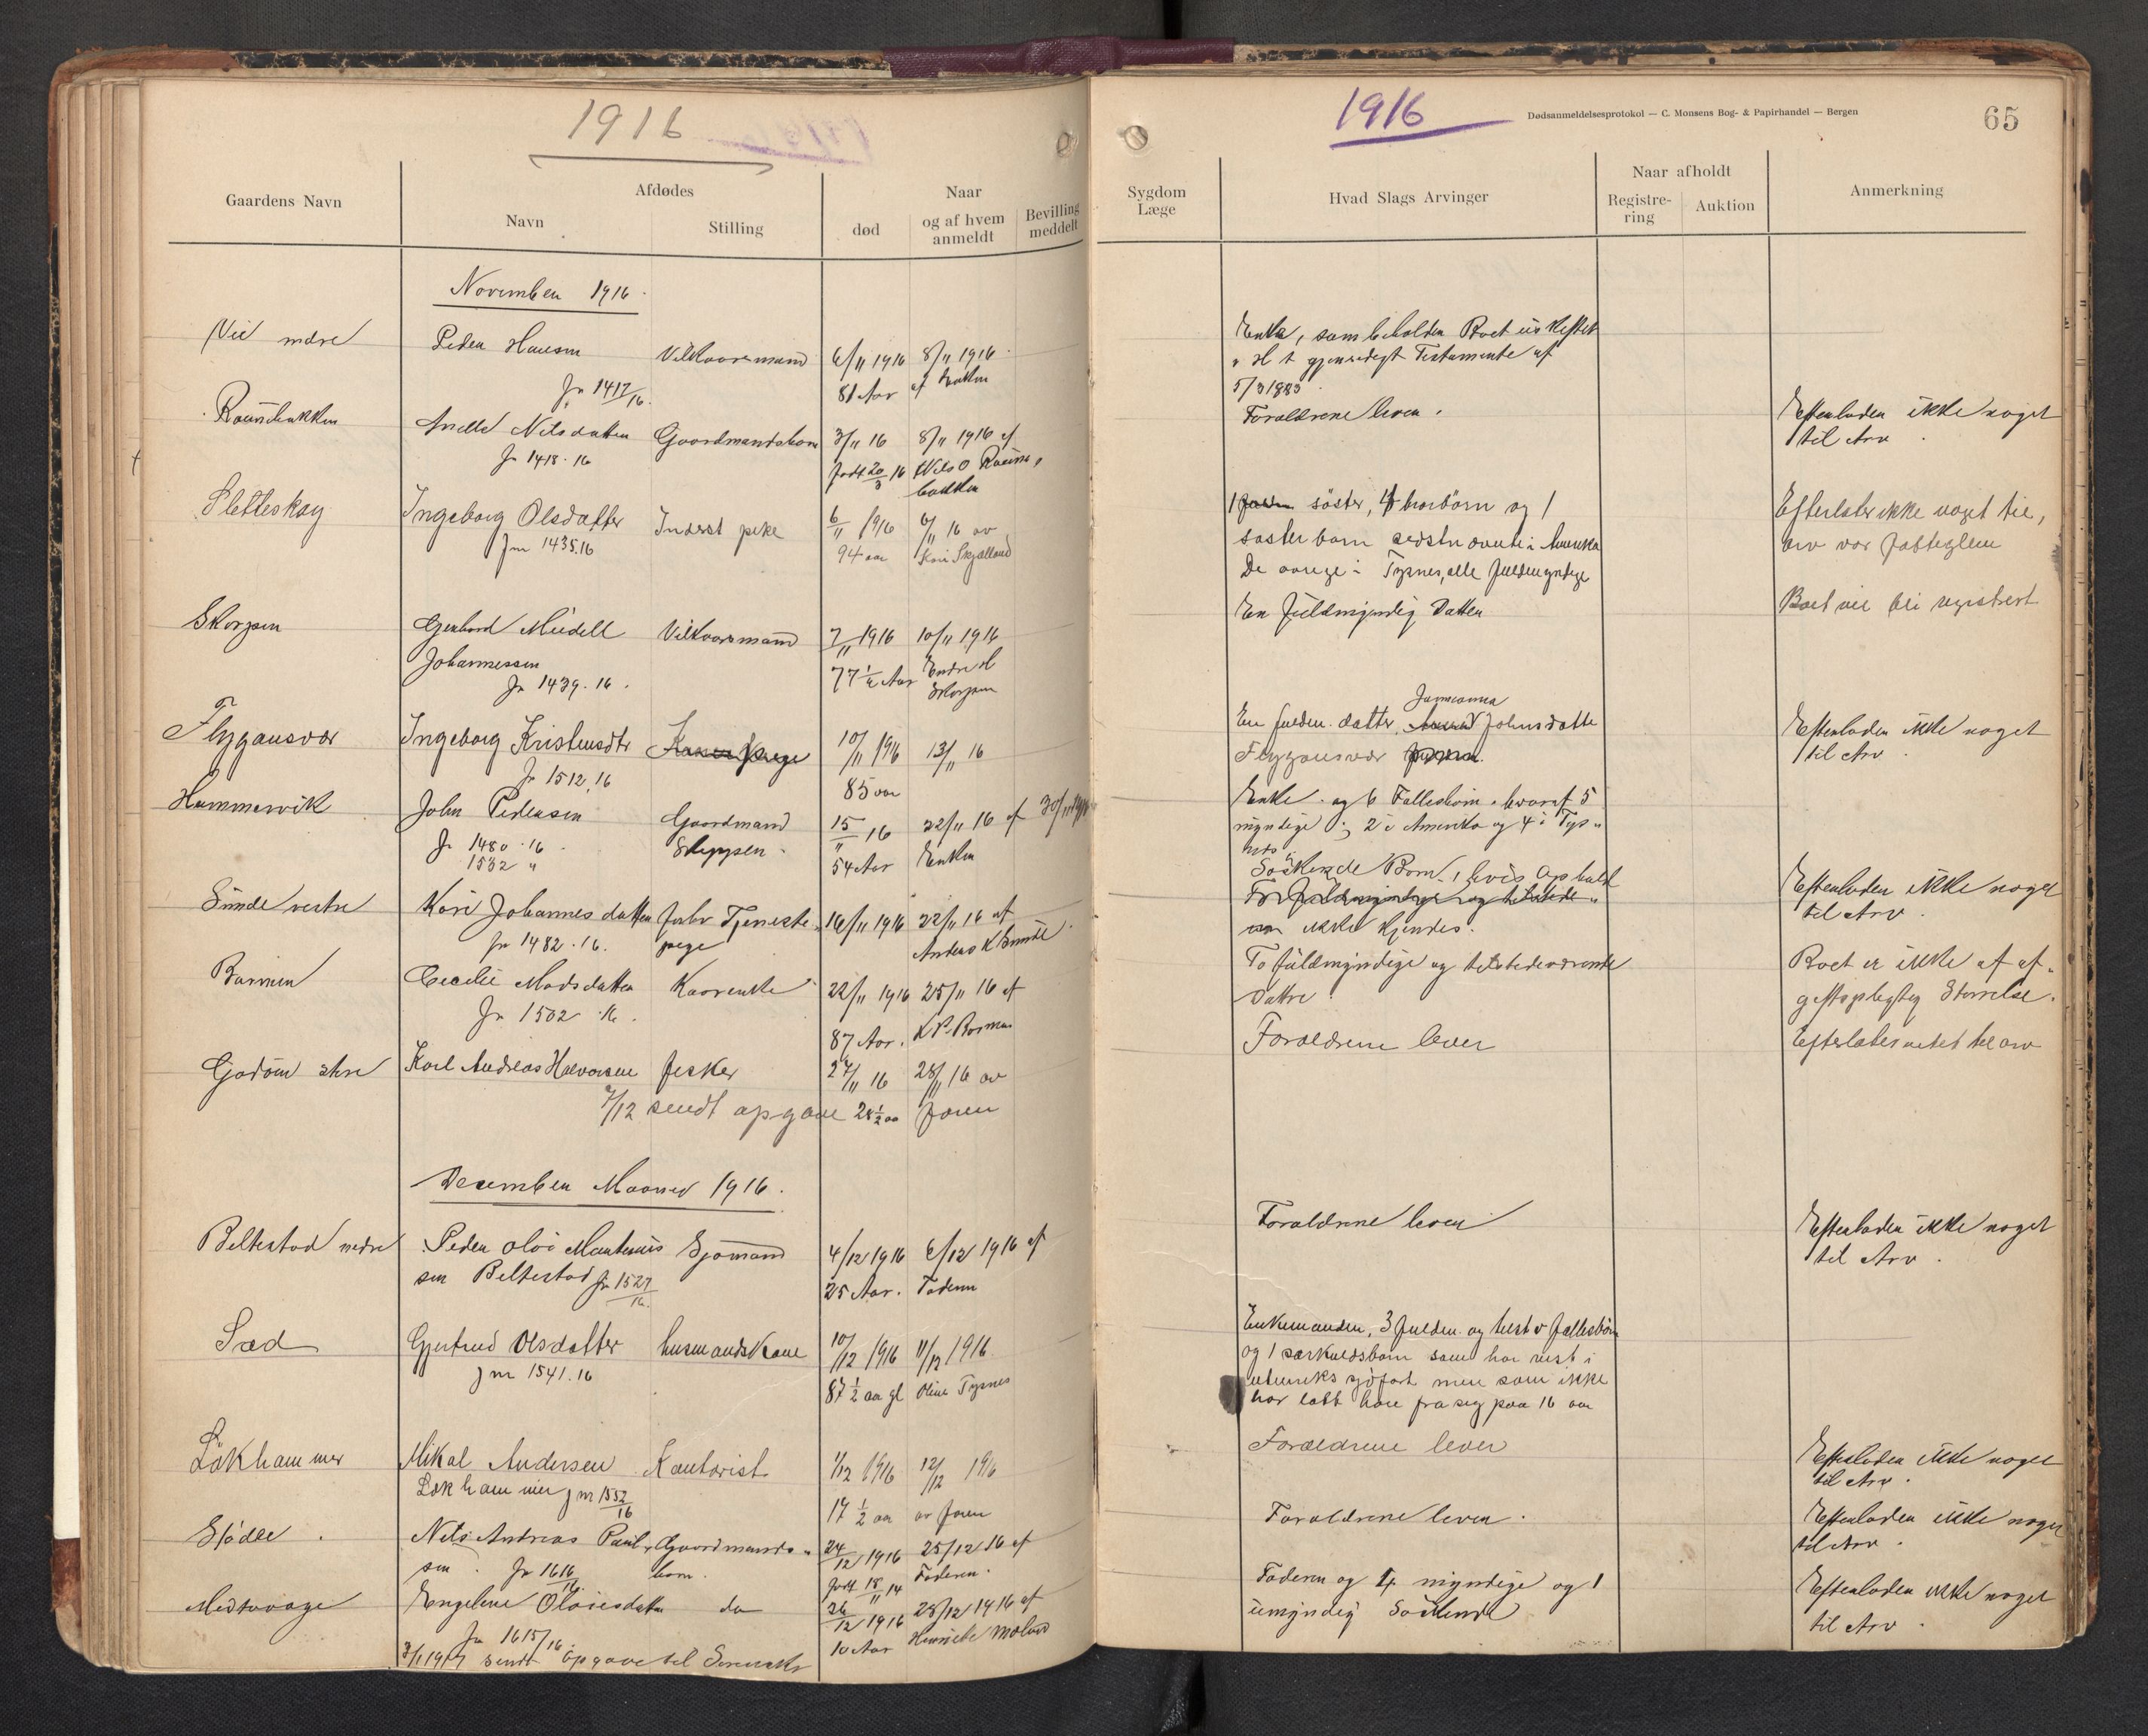 1916
Gaardens Navn
Afdødes
Navn
Stilling
død
Naar
og af hvem
anmeldt
Bevilling
meddelt
1916
Dødsanmeldelsesprotokol — C. Monsens Bog- & Papirhandel — Bergen
65
Sygdom
Læge
Hvad Slags Arvinger
Naar afholdt
Registre-
ring
Auktion
Anmerkning
November 1916.
Peder Hansen Vilkaarsmand 6/11 1916 8/11 1916
Jr 1417/16. 81 Aar af Enken
Enke, som beholder Boet uskiftet
gjensidigt Testamente af
Nilsdatter Gaardmandsbarn 3/11 16 8/11 1916 af
Jr 1418.16 født 20/3 16 Nils O
Forældrene lever. Efterlader ikke noget
til Arv.
Sletteskog Ingeborg Olsdatter Inderst pike 6/11 1916 6/11 16 av
Jnr 1435.16 94 aar Kari Skjælland
søster, 4 brorbørn og 1
søsterbarn sidstnævnte i Amerika
De øvrige i Tysnes, alle fuldmyndige
Efterlater ikke noget til
arv var fattiglem
Skorpen Gerhard Midell Vilkaarsmand 7/11 1916 10/11 1916
Johannessen 77 ½ Aar Endre H
Jr 1439.16. Skorpen
En fuldmyndig Datter Boet vil bli registrert
Flygansvær Ingeborg Kristensdtr 10/11 1916 13/11 16
Jr 1512.16 85 aar
En fuldm. datter, Johnsdatter
Flygansvær
Efterlader ikke noget
til Arv.
Hammersvik John Pedersen Gaardmand 15/11 16 22/11 16 af 30/11 1916
Jr 1480.16. Skipper. 54 Aar Enken
1532 "
Enke og 6 Fellesbørn hvoraf 5
myndige; 2 i Amerika og 4 i Tys-
nes
Sunde vestre Kari Johannesdatter forhv Tjeneste- 16/11 1916 22/11 16 af
Jr 1482.16. pige Anders K Sunde
Søskende Børn, hvis Ophold
ikke kjendes.
Efterlader ikke noget
til Arv.
Cecilie Madsdatter Kaarenke 22/11 1916 25/11 16 af
Jr 1502.16. 87 Aar.
To fuldmyndige og tilstedeværende
Døttre
Boet er ikke af af-
giftspligtig Størrelse.
Karl Andreas Halvorsen fisker 27/11 16 28/11 16 av
7/12 sendt opgave 28½ aar faren
Forældrene lever Efterlater intet til arv
December Maaned 1916.
Beltestad nedre Peder Olai Martinus Sjømand 4/12 1916 6/12 1916 af
sen Beltestad Jr 1527/16. 25 Aar. Faderen
Forældrene lever Efterlader ikke noget
til Arv.
Sæd Gjertrud Olsdatter husmandskone 10/12 1916 11/12 1916
jnr 1541.16 87½ aar gl Oline Tysnes
Enkemanden, 3 fuldm. og tilst v fællesbørn
og 1 særkuldsbarn som har reist i
utenriks sjøfart men som ikke
har latt høre fra seg paa 16 aar
Løkhammer Mikal Andersen Kontorist 1/12 1916 12/12 1916
Løkhammer jnr 1552/16 17 ½ aar av faren
Forældrene lever Efterlader ikke noget
til Arv.
Stødle. Nils Andreas Paul- Gaardmands- 24/12 1916 25/12 16 af
sen. Jr 1616/16. barn. født 18/11 14 Faderen.
Forældrene lever. Efterlader ikke noget
til Arv.
Engeline do 26/12 1916 28/12 1916 af
Jr 1615/16. 10 Aar
3/1 1917 sendt Opgave til
Faderen og 4 myndige og 1
umyndig Søskende
Efterlader ikke noget
til Arv.